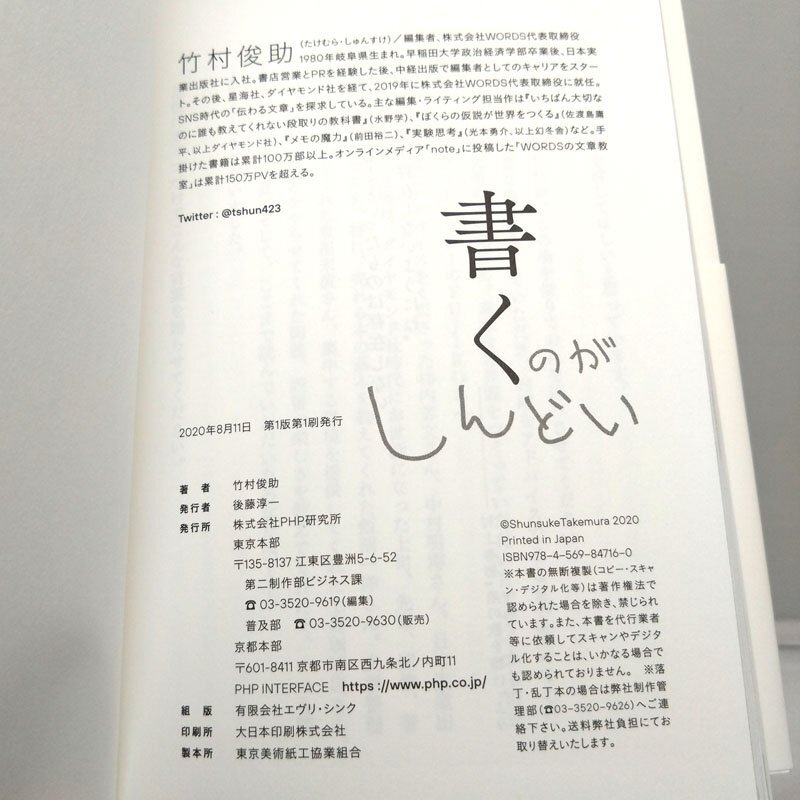 竹村俊助(たけむら・しゅんすけ)/編集者、株式会社WORDS代表取締役
1980年岐阜県生まれ。早稲田大学政治経済学部卒業後、日本実
業出版社に入社。書店営業とPRを経験した後、中経出版で編集者としてのキャリアをスター
ト。その後、星海社、ダイヤモンド社を経て、2019年に株式会社WORDS代表取締役に就任。
SNS時代の「伝わる文章」を探求している。主な編集・ライティング担当作は『いちばん大切な
のに誰も教えてくれない段取りの教科書』(水野学)、『ぼくらの仮説が世界をつくる』(佐渡島庸
平、以上ダイヤモンド社)、『メモの魔力』(前田裕二)、『実験思考』(光本勇介、以上幻冬舎)など。手
掛けた書籍は累計100万部以上。オンラインメディア「note」に投稿した「WORDSの文章教
室」は累計150万PVを超える。
Twitter : @tshun423
書くのが
しんどい
2020年8月11日 第1版第1刷発行
著者 竹村俊助
発行者 後藤淳一
発行所 株式会社PHP研究所
東京本部
〒135-8137 江東区豊洲5-6-52
第二制作部ビジネス課
☎03-3520-9619(編集)
普及部 ☎03-3520-9630(販売)
京都本部
〒601-8411 京都市南区西九条北ノ内町11
PHP INTERFACE https://www.php.co.jp/
組版 有限会社エヴリ・シンク
印刷所 大日本印刷株式会社
製本所 東京美術紙工協業組合
©ShunsukeTakemura 2020
Printed in Japan
ISBN978-4-569-84716-0
※本書の無断複製(コピー・スキャ
ン・デジタル化等)は著作権法で
認められた場合を除き、禁じられ
ています。また、本書を代行業者
等に依頼してスキャンやデジタ
ル化することは、いかなる場合で
も認められておりません。 ※落
丁・乱丁本の場合は弊社制作管
理部(☎03-3520-9626)へご連
絡下さい。送料弊社負担にてお
取り替えいたします。